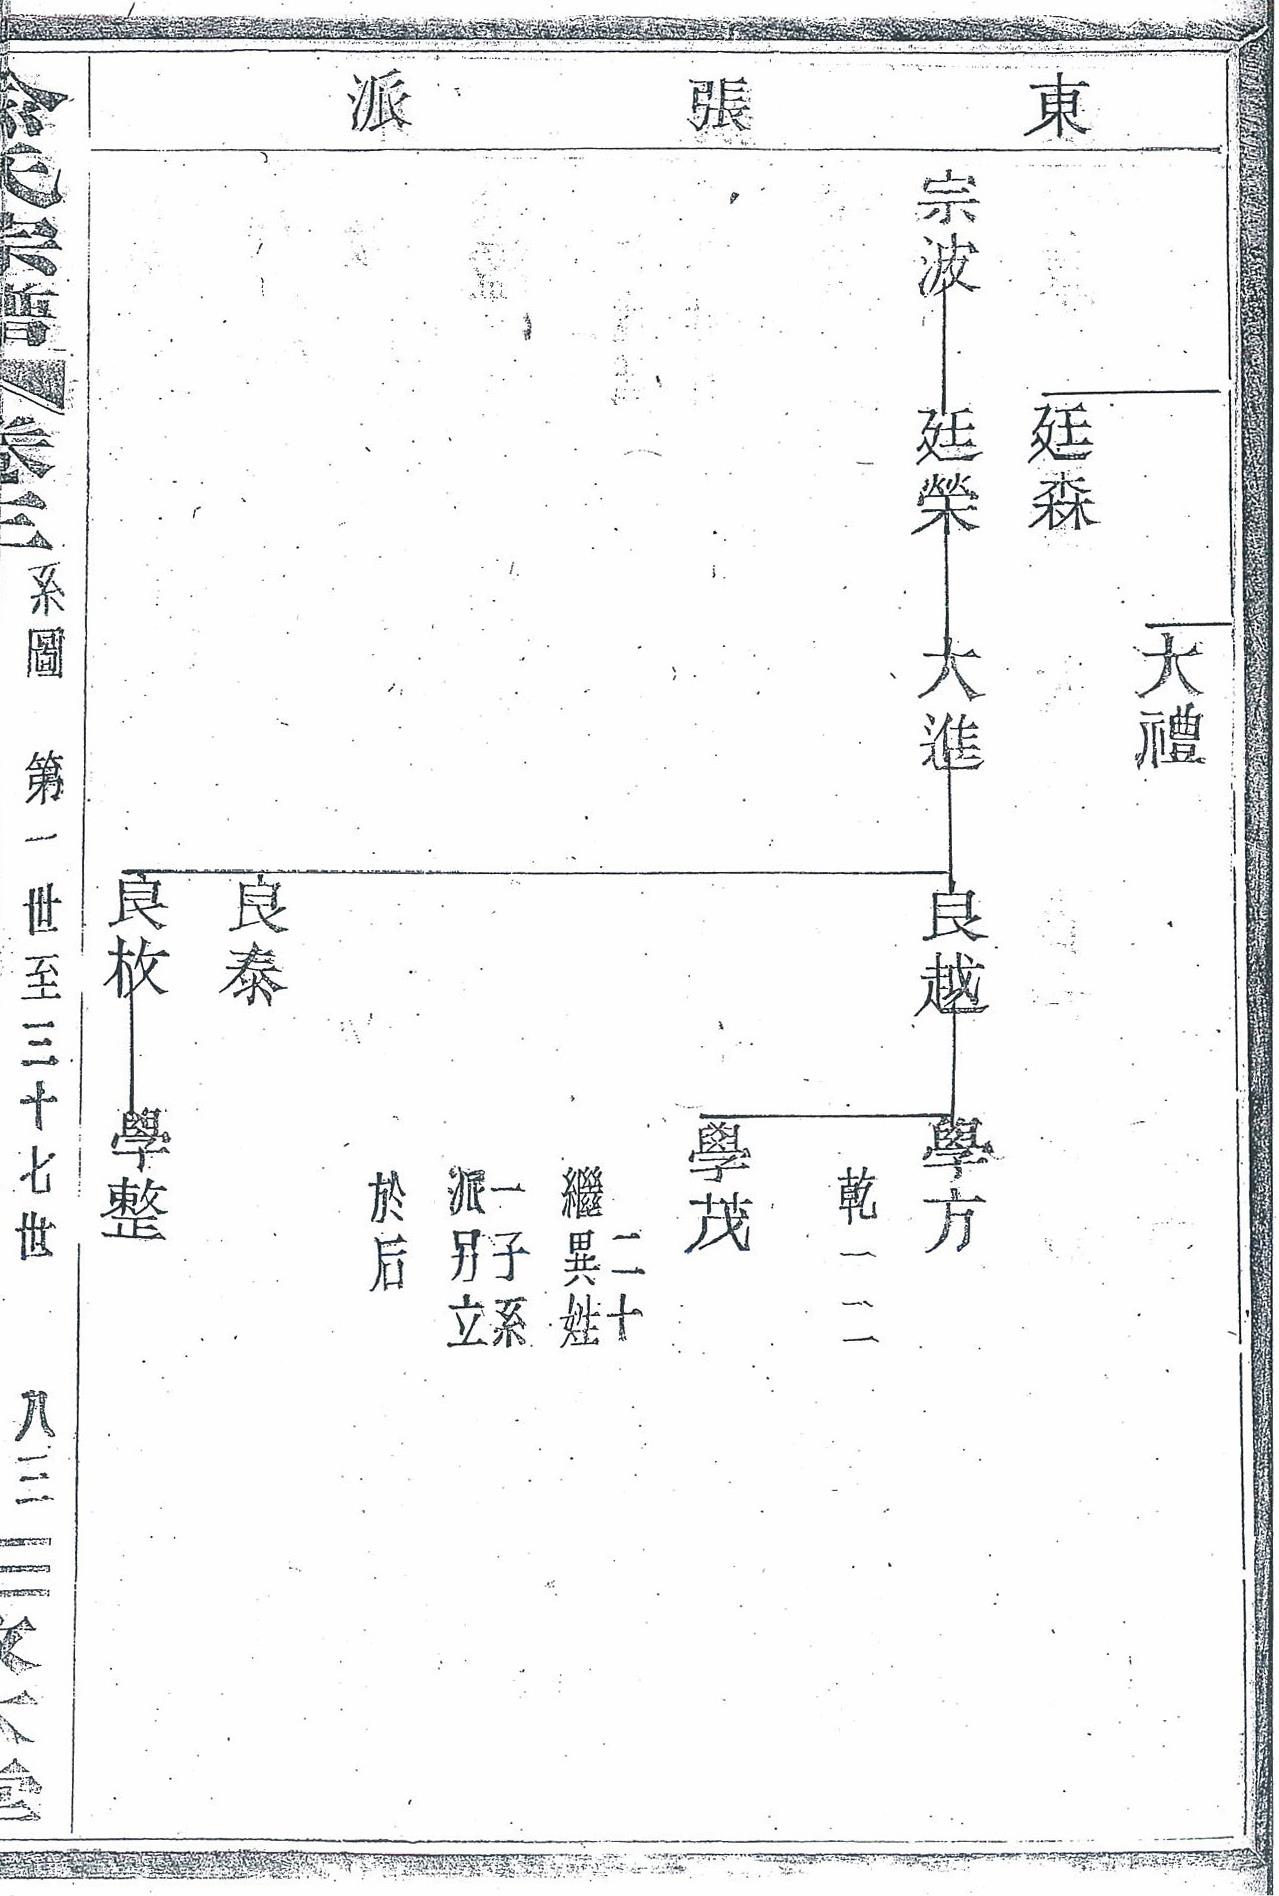 東張派
大禮
廷森
宗波
廷榮
大進
良越
學方
乾一二
學茂
二十
繼異姓
一子系
派另立
於后
良泰
良枚
學整
氏宗譜
卷三
系圖
第一世至三十七世
八三